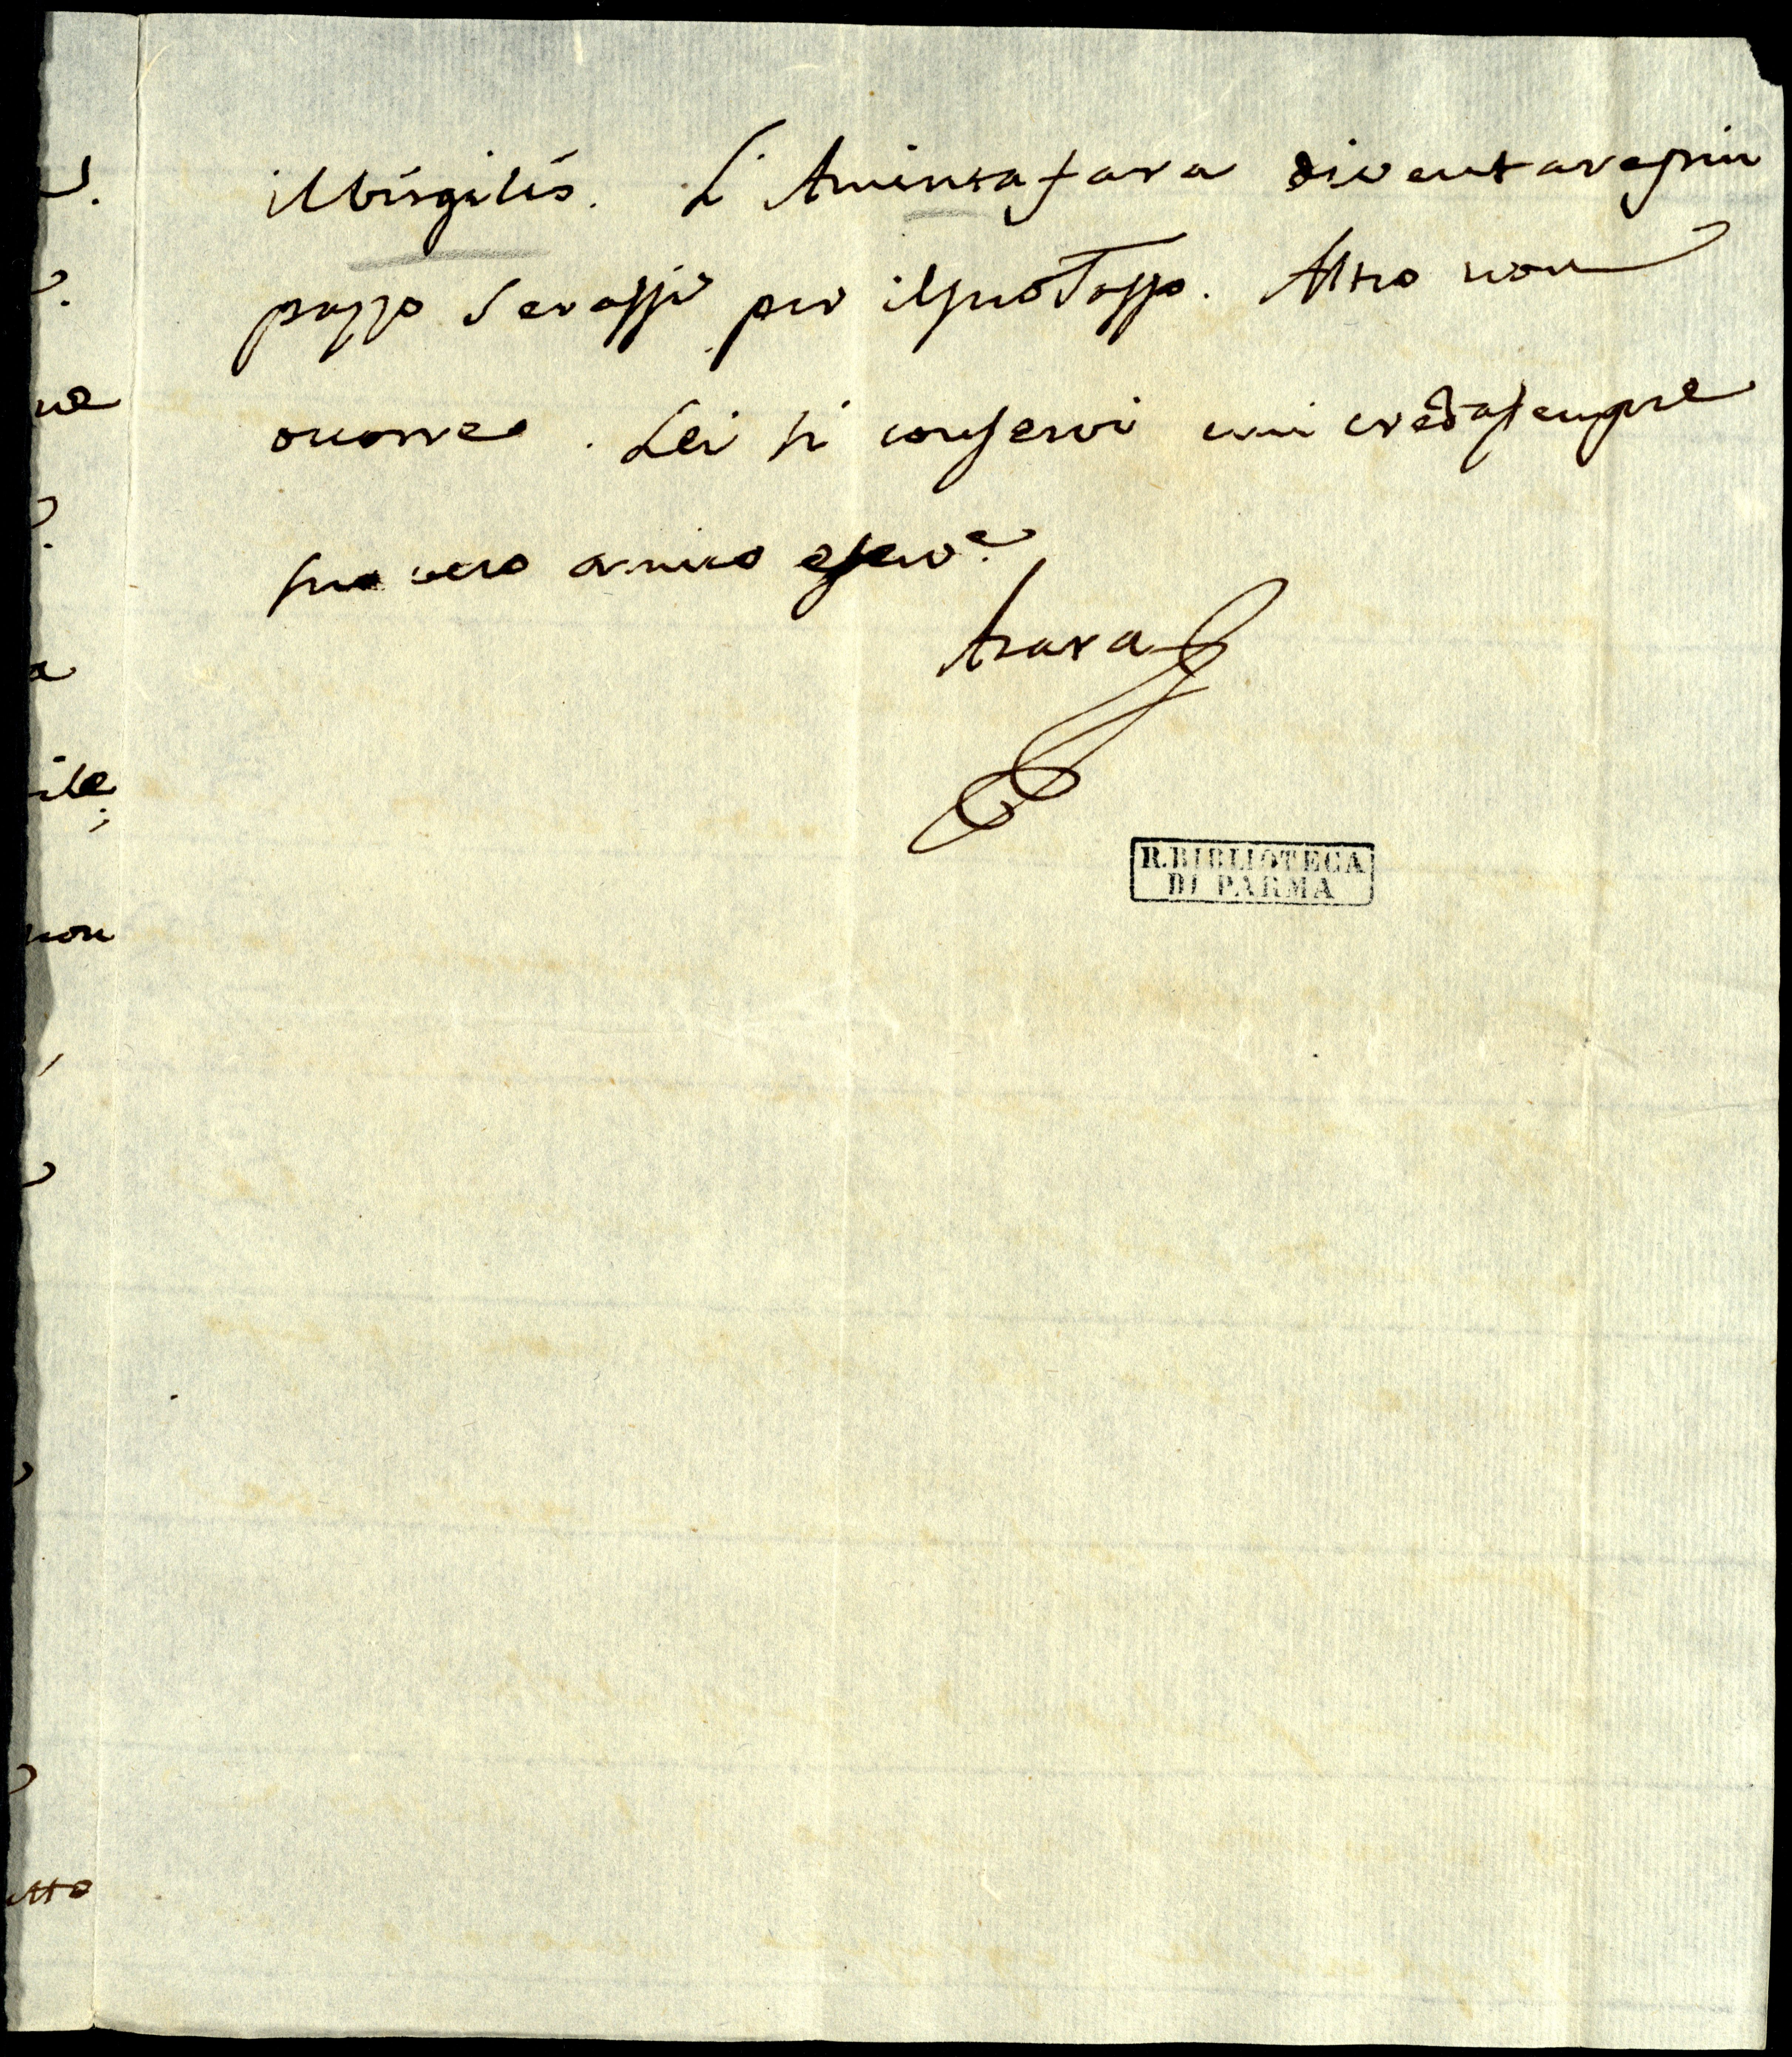 il Virgilio. L'Aminta fara diventare piu
pazzo Serassi per il suo Tasso. Altro non
occorre. Lei si conservi e mi creda sempre
suo vero amico e serv.e
Azara
R. BIBLIOTECA
DI PARMA
ne
a
ile;
non